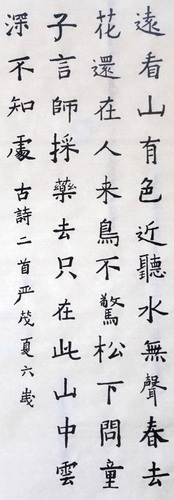 遠看山有色近聽水無聲春去
花還在人来鳥不驚松下問童
子言師採藥去只在此山中雲
深不知處古詩二首严茂夏六歲